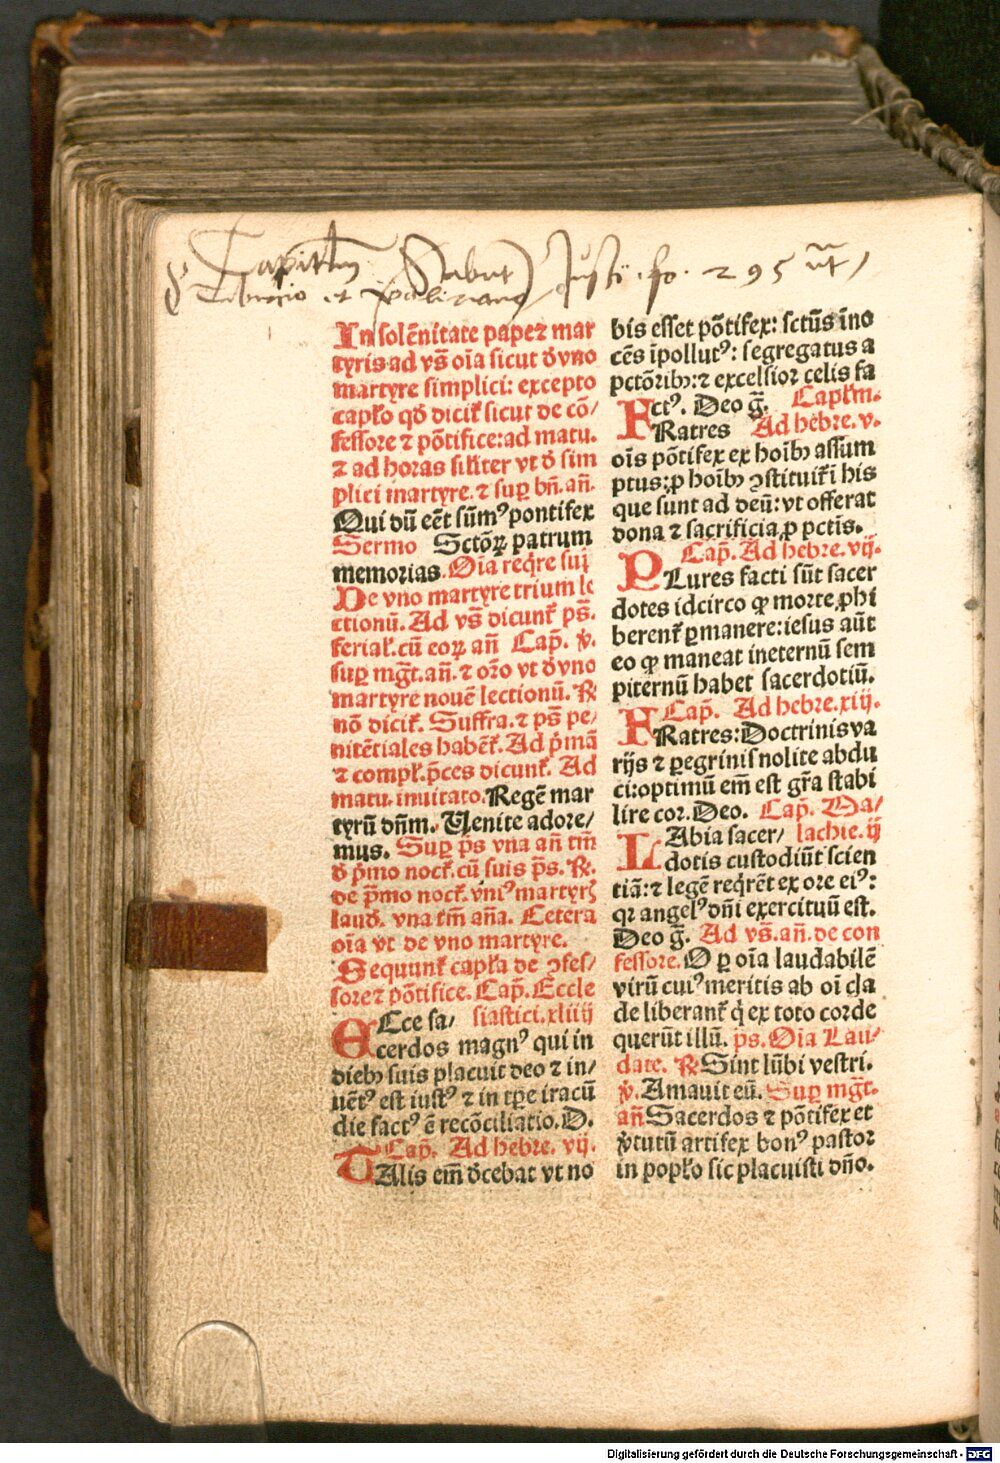 Capitlm Stabut Justi . fo . 295
Tiburcio et
In solēnitate papeꝛ mar
tyris ad vs̄ oīa sicut d̓ vno
martyre simplici: excepto
capło qd̓ dicit̄ sicut de cō/
fessore ⁊ pōtifice: ad matu.
⁊ ad horas sił̓iter vt d̓ sim
plici martyre. ⁊ suꝑ bn̄. an̄.
Qui dū eēt sūmꝰ pontifex
Sermo Sctōꝝ patrum
memorias. Oīa reqͥre suꝑ
De vno martyre trium le
ctionū. Ad vs̄ dicunt̄ ps̄.
ferial̓. cū eoꝝ an̄ Cap̄. ꝟ.
suꝑ mg̅t. an̄. ⁊ oꝛ̄o vt d̓ vno
martyre nouē lectionū. ℟
nō dicit̄. Suffra. ⁊ ps̄ pe/
nitētiales habēt̄. Ad pͥmā
⁊ compl̓. p̄ces dicunt̄. Ad
matu. inuitato. Regē mar
tyrū dn̄m. Uenite adore/
mus. Suꝑ ps̄ vna an̄ tm̄
d̓ pͥmo noct̄. cū suis ps̄. ℟.
de pͥmo noct̄. vniꝰ martyrꝭ
laud̓. vna tm̄ an̄a. Cetera
oīa vt de vno martyre.
Sequunt̄ capła de ꝯfes/
sore ⁊ pōtifice. Cap̄. Eccle
ECce sa/ siastici. xliiij
cerdos magnꝰ qui in
dieb⁹ suis placuit deo ⁊ in/
uētꝰ est iustꝰ ⁊ in tp̄e iracū
die factꝰ ē recōciliatio. D.
Cap̄. Ad hebre. vij.
TAlis em̄ d̓cebat vt no
bis esset pōtifex: sctūs īno
cēs īpollutꝰ: segregatus a
pctōrib⁹: ⁊ excelsioꝛ celis fa
ctꝰ. Deo g̅. Capłm.
FRatres Ad hebre. v.
oīs pōtifex ex hoīb⁹ assum
ptus: ꝓ hoīb⁹ ꝯstituit̄ ī his
que sunt ad deū: vt offerat
dona ⁊ sacrificia ꝓ pctīs.
Cap̄. Ad hebre. vij.
PLures facti sūt sacer
dotes idcirco ꝙ moꝛte ꝓhi
berent̄ ꝑmanere: iesus aūt
eo ꝙ maneat ineternū sem
piternū habet sacerdotiū.
Cap̄. Ad hebre. xiij.
FRatres: Doctrinis va
rijs ⁊ ꝑegrinis nolite abdu
ci: optimū em̄ est gr̄a stabi
lire coꝛ. Deo. Cap̄. Ma/
LAbia sacer/ lachie. ij
dotis custodiūt scien
tiā: ⁊ legē reqͥrēt ex oꝛe eiꝰ:
qꝛ angelꝰ dn̄i exercituū est.
Deo g̅. Ad vs̄. an̄. de con
fessore. O ꝑ oīa laudabilē
virū cuiꝰ meritis ab oī cla
de liberant̄ qͥ ex toto coꝛde
querūt illū. ps̄. Oīa Lau/
date. ℟ Sint lūbi vestri.
ꝟ. Amauit eū. Suꝑ mg̅t.
an̄ Sacerdos ⁊ pōtifex et
ꝟtutū artifex bonꝰ pastoꝛ
in popło sic placuisti dn̄o.
Digitalisierung gefördert durch die Deutsche Forschungsgemeinschaft - DFG